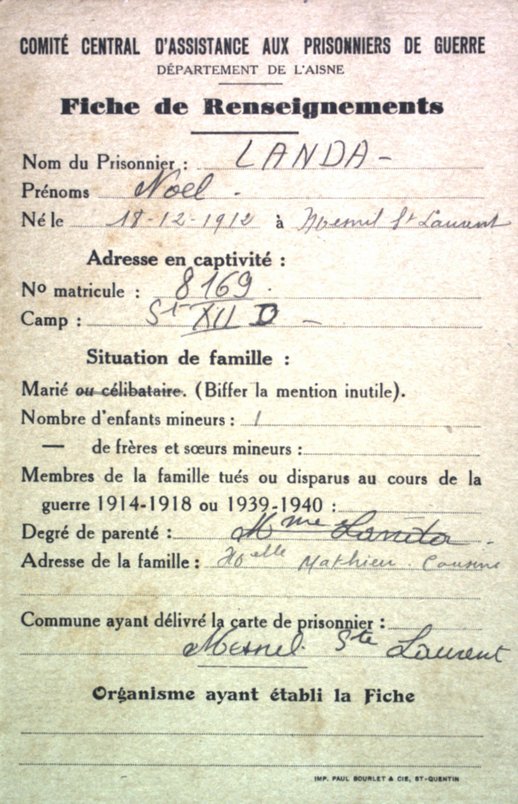 COMITÉ CENTRAL D'ASSISTANCE AUX PRISONNIERS DE GUERRE
DÉPARTEMENT DE L'AISNE
Fiche de Renseignements
Nom du Prisonnier : LANDA -
Prénoms Noel -
Né le 18-12-1912 à Mesnil St Laurent
Adresse en captivité :
No matricule : 8169.
Camp : St XII D -
Situation de famille :
Marié ou célibataire. (Biffer la mention inutile).
Nombre d'enfants mineurs : 1
— de frères et sœurs mineurs :
Membres de la famille tués ou disparus au cours de la
guerre 1914-1918 ou 1939-1940 :
Degré de parenté : Mme Landa -
Adresse de la famille : Mathieu
Commune ayant délivré la carte de prisonnier :
Mesnel Ste Laurent
Organisme ayant établi la Fiche
IMP. PAUL BOURLET & CIE, ST-QUENTIN